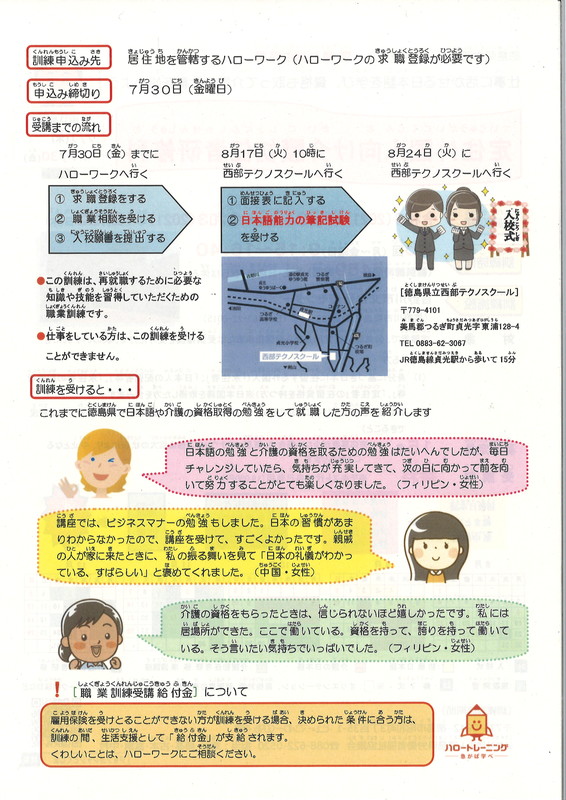 訓練申込み先 居住地を管轄するハローワーク（ハローワークの求職登録が必要です）
申込み締切り 7月30日（金曜日）
受講までの流れ
7月30日（金）までに
ハローワークへ行く
① 求職登録をする
② 職業相談を受ける
③ 入校願書を提出する
8月17日（火）10時に
西部テクノスクールへ行く
① 面接表に記入する
② 日本語能力の筆記試験
を受ける
8月24日（火）に
西部テクノスクールへ行く
入校式
●この訓練は、再就職するために必要な
知識や技能を習得していただくための
職業訓練です。
●仕事をしている方は、この訓練を受ける
ことができません。
西部テクノスクール
[徳島県立西部テクノスクール]
〒779-4101
美馬郡つるぎ町貞光字東浦128-4
TEL 0883-62-3067
JR徳島線貞光駅から歩いて15分
訓練を受けると・・・
これまでに徳島県で日本語や介護の資格取得の勉強をして就職した方の声を紹介します
日本語の勉強と介護の資格を取るための勉強はたいへんでしたが、毎日
チャレンジしていたら、気持ちが充実してきて、次の日に向かって前を向
いて努力することがとても楽しくなりました。（フィリピン・女性）
講座では、ビジネスマナーの勉強もしました。日本の習慣があま
りわからなかったので、講座を受けて、すごくよかったです。親戚
の人が家に来たときに、私の振る舞いを見て「日本の礼儀がわかっ
ている、すばらしい」と褒めてくれました。（中国・女性）
介護の資格をもらったときは、信じられないほど嬉しかったです。私には
居場所ができた。ここで働いている。資格を持って、誇りを持って働いて
いる。そう言いたい気持ちでいっぱいでした。（フィリピン・女性）
！［職業訓練受講給付金］について
雇用保険を受けとることができない方が訓練を受ける場合、決められた条件に合う方は、
訓練の間、生活支援として「給付金」が支給されます。
くわしいことは、ハローワークにご相談ください。
ハロートレーニング
急がば学べ